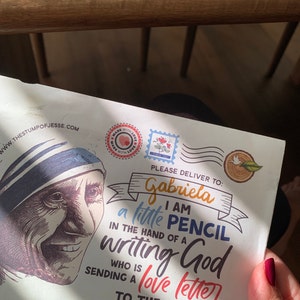 WWW.THESTUMPOFJESSE.COM
PLEASE DELIVER TO:
Gabriela
I AM
a little PENCIL
IN THE HAND OF A
writing God
WHO IS
SENDING A love letter
TO THE